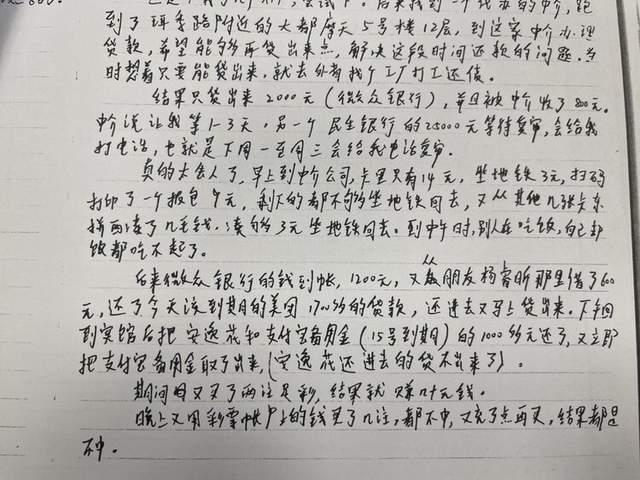 后来找到一个代办的中介，跑
到了珥季路附近的大都摩天5号楼12层，到这家中介办理
贷款，希望能够再贷出来点，解决这段时间还款的问题。当
时想着只要能贷出来，就去外省找个工厂打工还债。
结果只贷出来2000元（微众银行），并且被中介收了800元。
中介说让我等1-3天，另一个民生银行的25000元等待复审，会给我
打电话，也就是下周一至周三会给我电话复审。
真的太舍人了，早上到中介公司，卡里只有14元，坐地铁3元，扫码
打印了一个报包9元，剩下的都不够坐地铁回去，又从其他几张卡东
拼西凑了几毛钱，凑够3元坐地铁回去。到中午时，别人在吃饭，自己却
饭都吃不起了。
后来微众银行的钱到帐，1200元，又从朋友杨睿昕那里借了600
元，还了今天该到期的美团1700多的贷款，还进去又马上贷出来。下午回
到宾馆后把安逸花和支付宝备用金（15号到期）的1000多元还了，又立即
把支付宝备用金取了出来，（安逸花还进去的贷不出来了）。
期间自又买了两注足彩，结果就赚几十元钱。
晚上又用彩票帐户上的钱买了几注，都不中，又充了点再买，结果都是
不中。